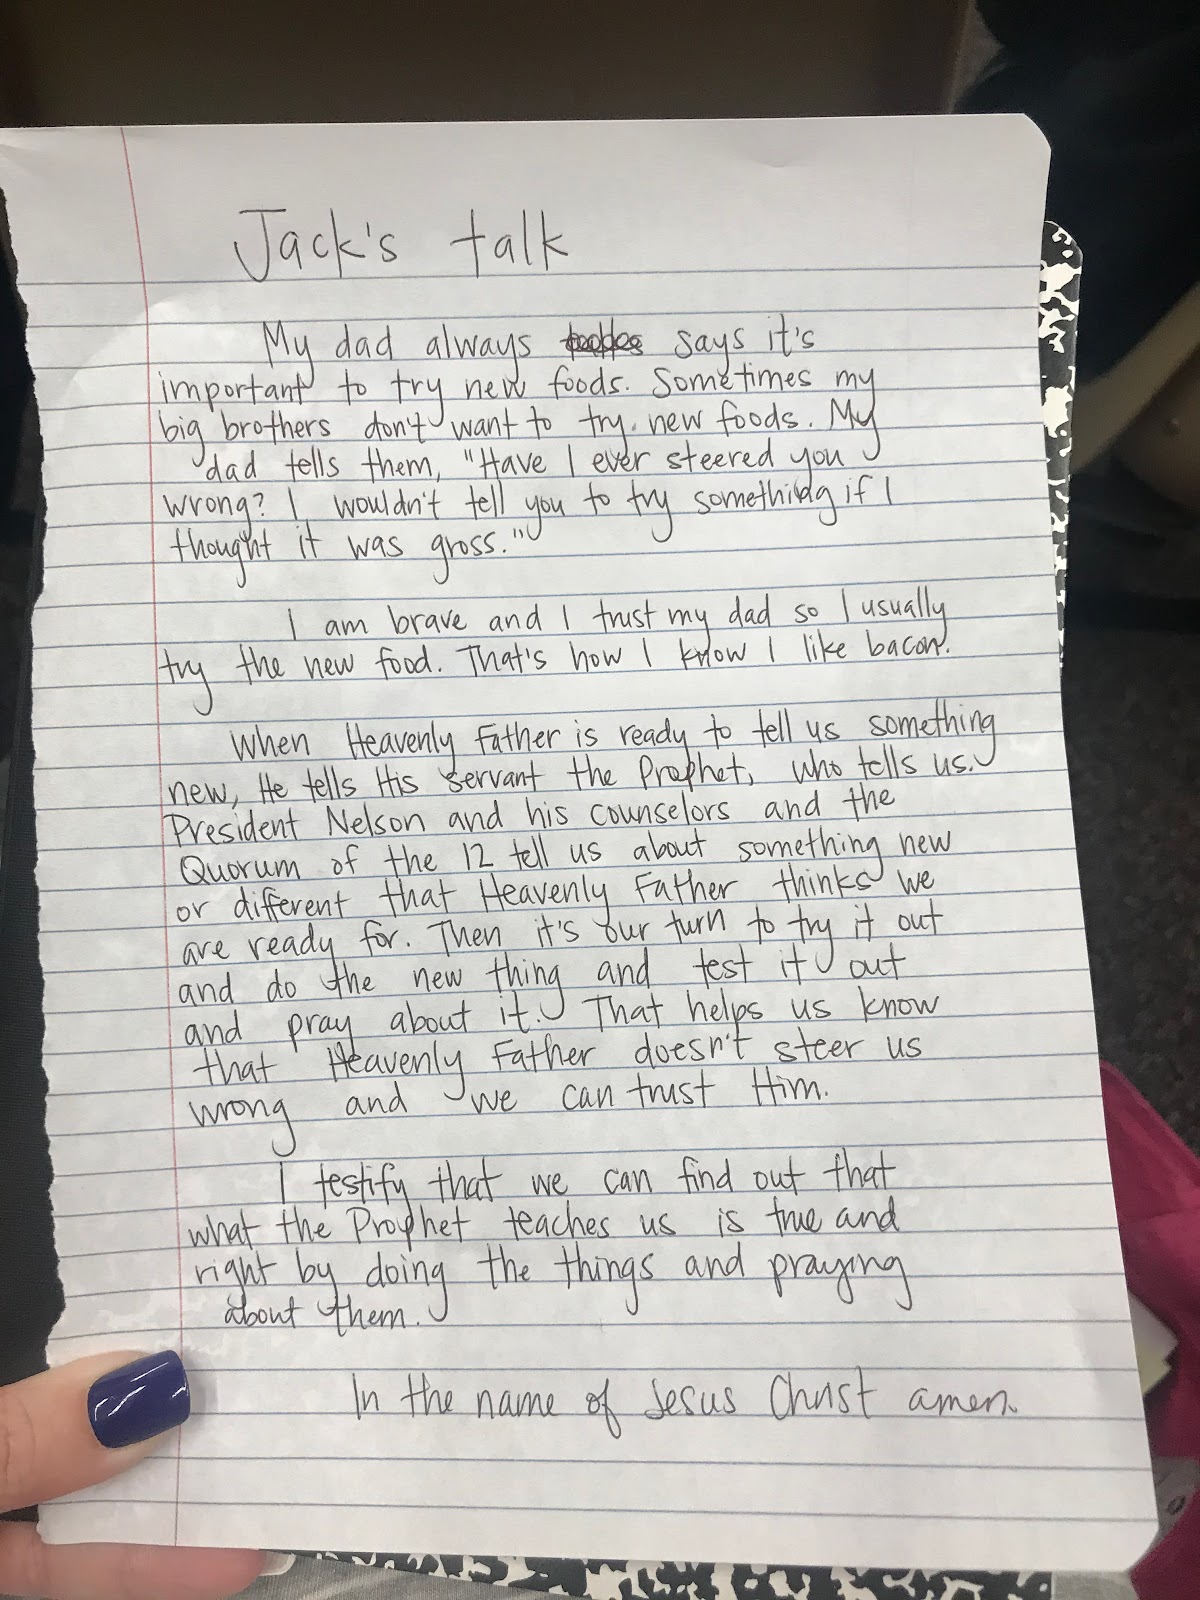 Jack's talk
My dad always says it's
important to try new foods. Sometimes my
big brothers don't want to try new foods. My
dad tells them, "Have I ever steered you
wrong? I wouldn't tell you to try something if I
thought it was gross."
I am brave and I trust my dad so I usually
try the new food. That's how I know I like bacon.
When Heavenly Father is ready to tell us something
new, He tells His servant the Prophet, who tells us.
President Nelson and his counselors and the
Quorum of the 12 tell us about something new
or different that Heavenly Father thinks we
are ready for. Then it's our turn to try it out
and do the new thing and test it out
and pray about it. That helps us know
that Heavenly Father doesn't steer us
wrong and we can trust Him.
I testify that we can find out that
what the Prophet teaches us is true and
right by doing the things and praying
about them.
In the name of Jesus Christ amen.